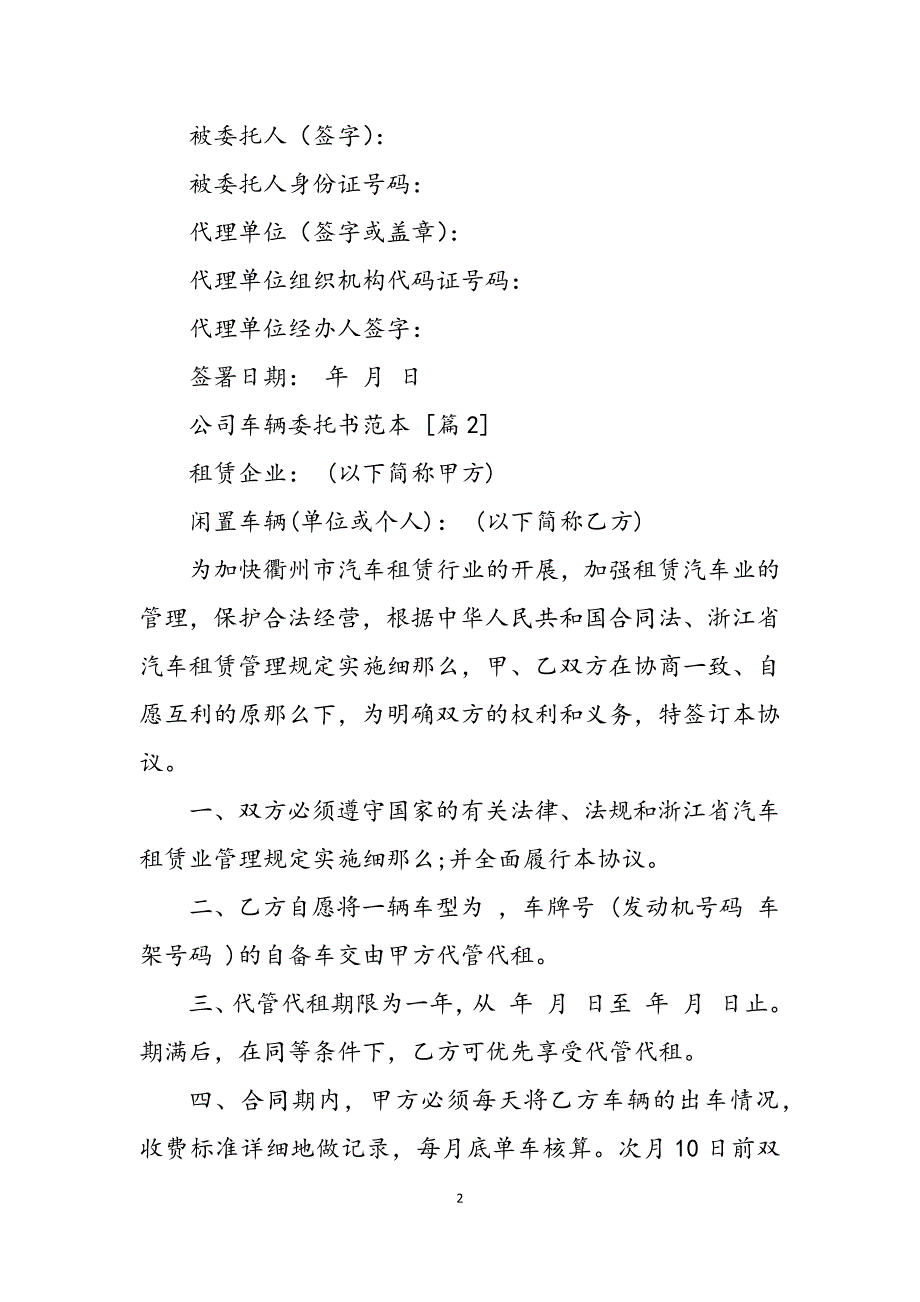 被委托人（签字）：
被委托人身份证号码：
代理单位（签字或盖章）：
代理单位组织机构代码证号码：
代理单位经办人签字：
签署日期： 年 月 日
公司车辆委托书范本 [篇2]
租赁企业： (以下简称甲方)
闲置车辆(单位或个人)： (以下简称乙方)
为加快衢州市汽车租赁行业的开展，加强租赁汽车业的
管理，保护合法经营，根据中华人民共和国合同法、浙江省
汽车租赁管理规定实施细那么，甲、乙双方在协商一致、自
愿互利的原那么下，为明确双方的权利和义务，特签订本协
议。
一、双方必须遵守国家的有关法律、法规和浙江省汽车
租赁业管理规定实施细那么;并全面履行本协议。
二、乙方自愿将一辆车型为 ，车牌号 (发动机号码 车
架号码 )的自备车交由甲方代管代租。
三、代管代租期限为一年，从 年 月 日至 年 月 日止。
期满后，在同等条件下，乙方可优先享受代管代租。
四、合同期内，甲方必须每天将乙方车辆的出车情况，
收费标准详细地做记录，每月底单车核算。次月10日前双
2